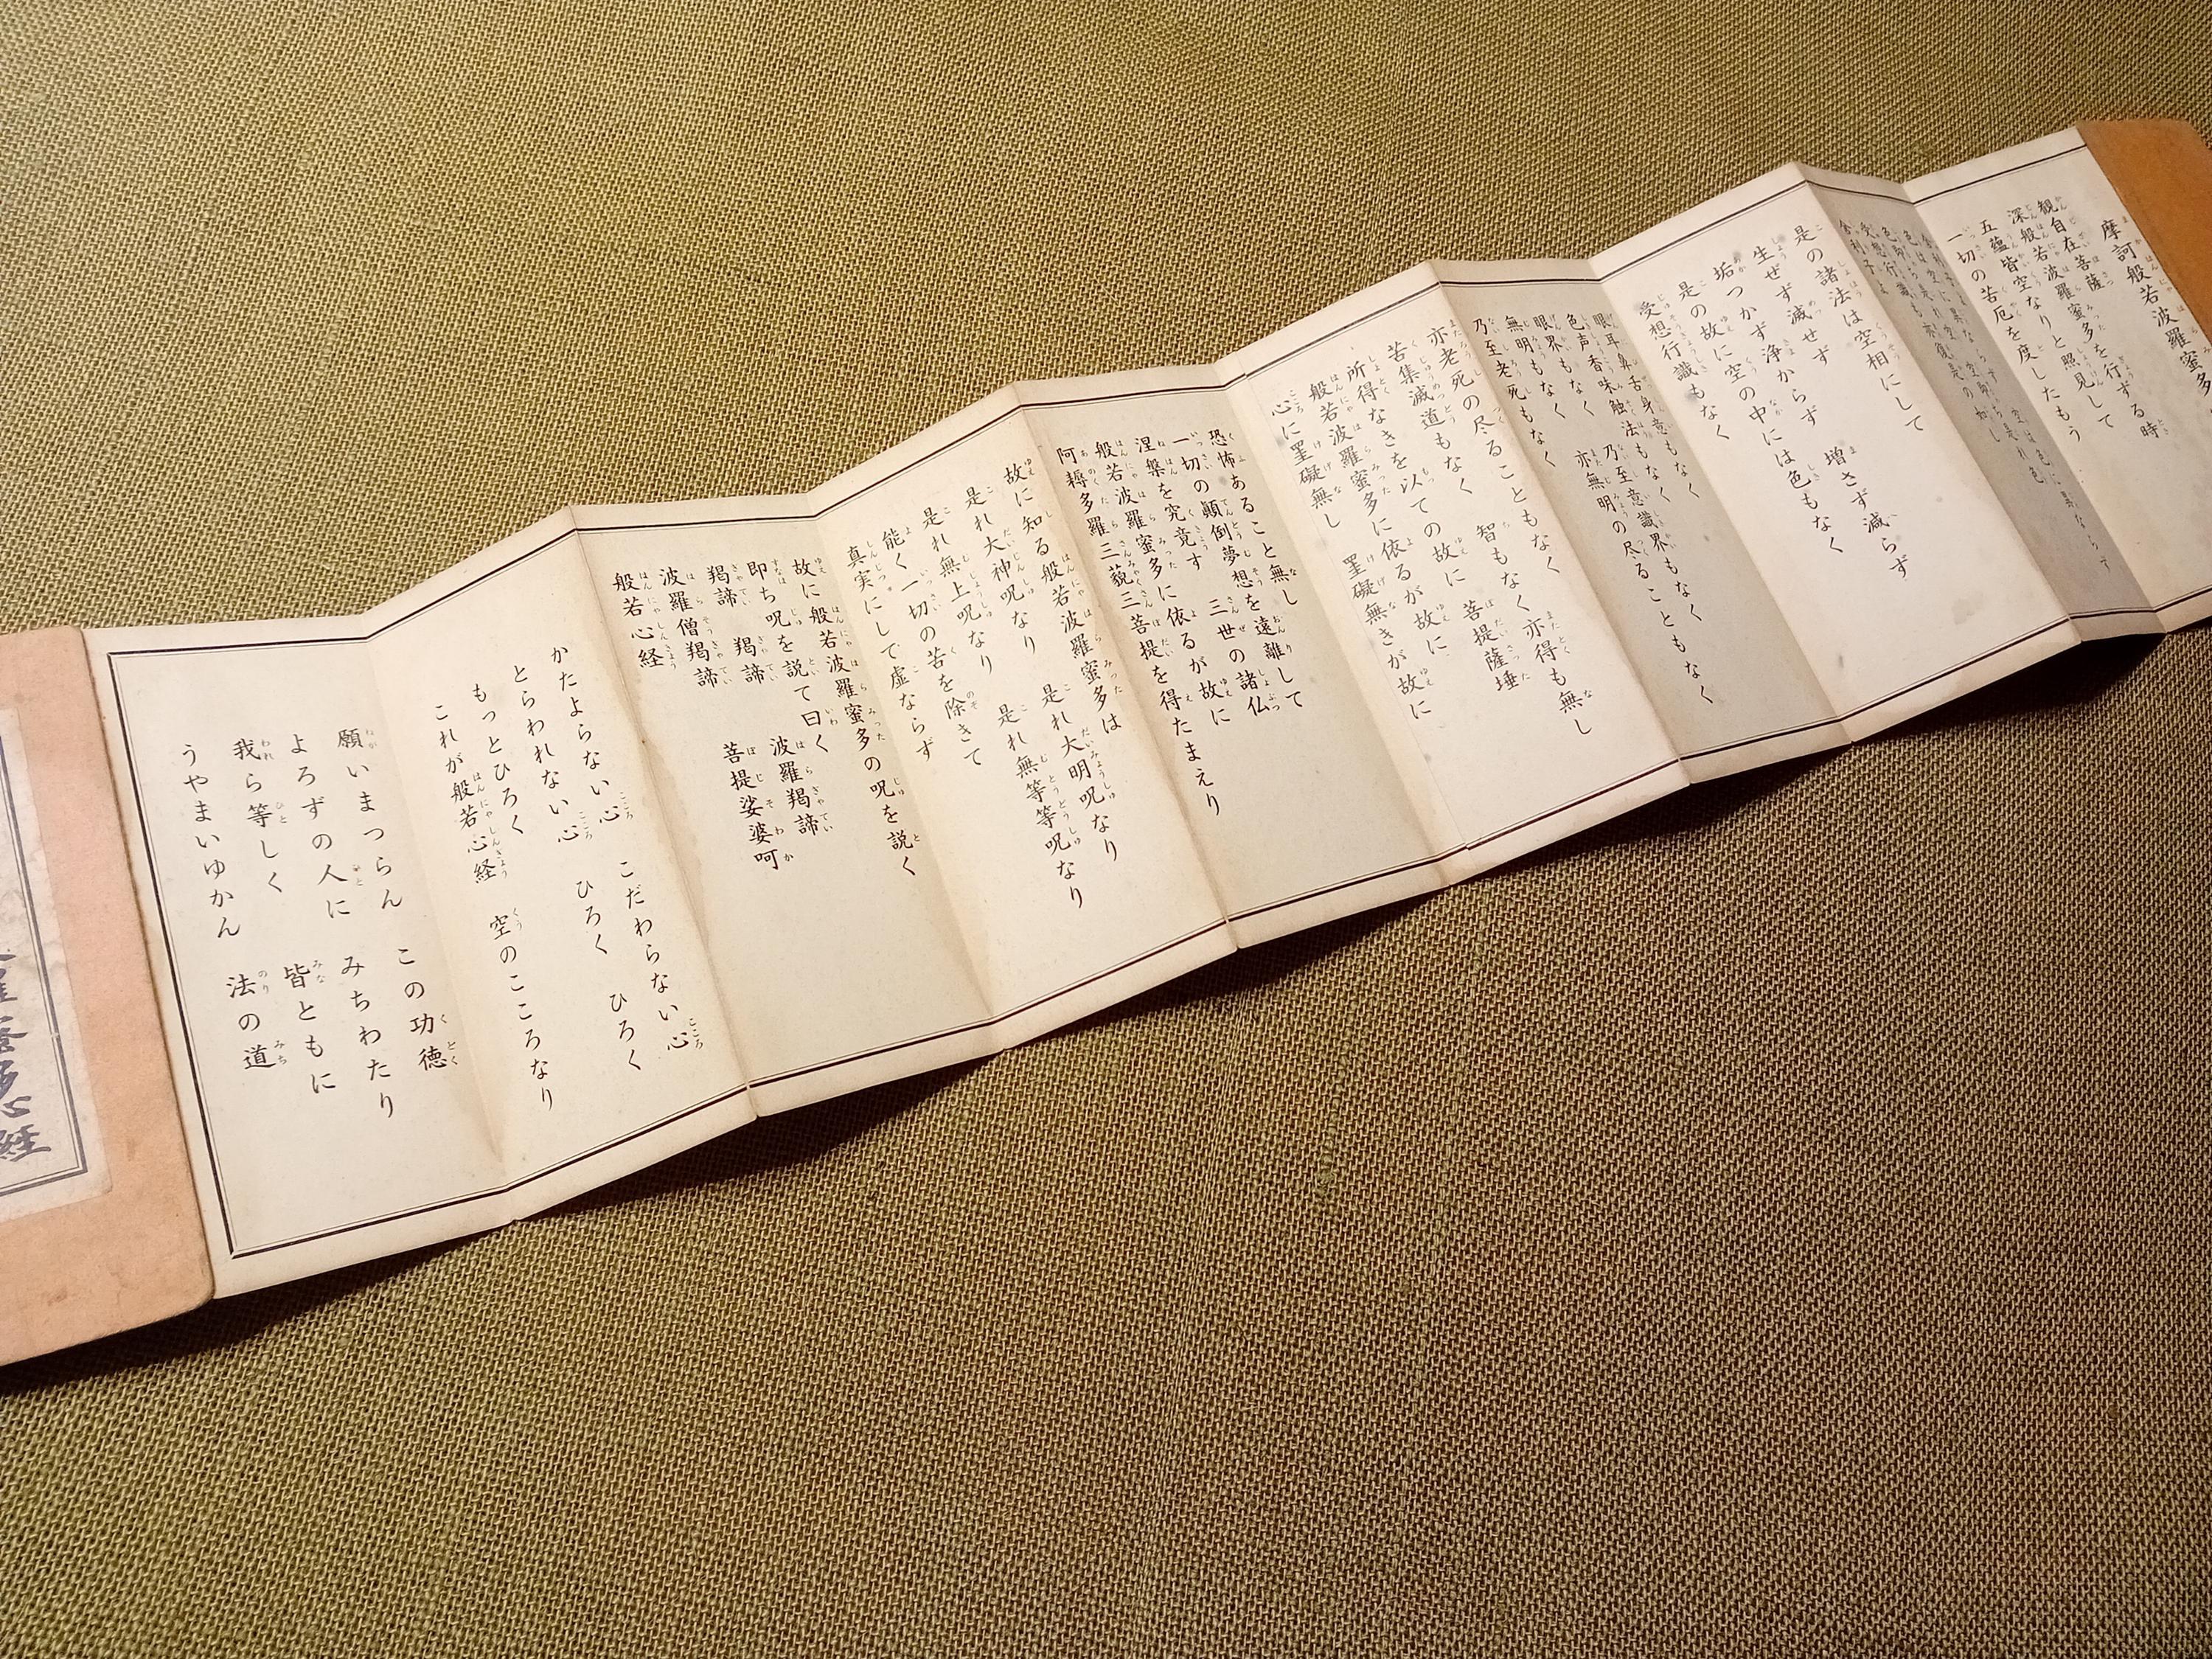 摩訶般若波羅蜜多
観自在菩薩
深般若波羅蜜多を行ずる時
五蘊皆空なりと照見して
一切の苦厄を度したもう
舎利子よ
是の諸法は空相にして
生ぜず滅せず
垢つかず浄からず 増さず減らず
是の故に空の中には色もなく
受想行識もなく
眼耳鼻舌身意もなく
色声香味触法もなく
眼界もなく 乃至意識界もなく
無明もなく 亦無明の尽ることもなく
乃至老死もなく
亦老死の尽ることもなく
苦集滅道もなく 智もなく亦得も無し
所得なきを以ての故に 菩提薩埵
般若波羅蜜多に依るが故に
心に罣礙無し 罣礙無きが故に
恐怖あること無し
一切の顛倒夢想を遠離して
涅槃を究竟す 三世の諸仏
般若波羅蜜多に依るが故に
阿耨多羅三藐三菩提を得たまえり
故に知る般若波羅蜜多は
是れ大神呪なり 是れ大明呪なり
是れ無上呪なり 是れ無等等呪なり
能く一切の苦を除きて
真実にして虚ならず
故に般若波羅蜜多の呪を説く
即ち呪を説て曰く
羯諦 羯諦 波羅羯諦
波羅僧羯諦 菩提娑婆呵
般若心経
かたよらない心 こだわらない心
とらわれない心 ひろく ひろく
もっとひろく
これが般若心経 空のこころなり
願いまつらん この功徳
よろずの人に みちわたり
我ら等しく 皆ともに
うやまいゆかん 法の道
多心経